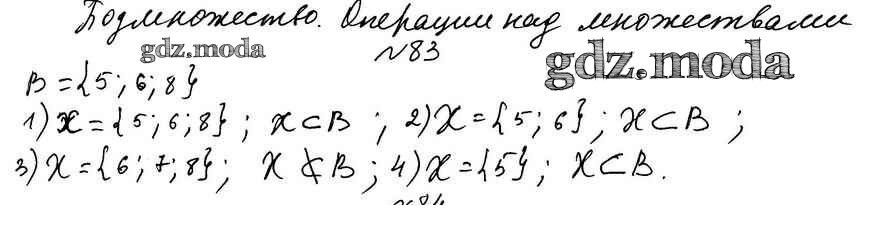 Подмножество. Операции над множествами
gdz.moda
№83
gdz.moda
B = {5; 6; 8}
1) X = {5; 6; 8}; X ⊂ B; 2) X = {5; 6}; X ⊂ B;
3) X = {6; 7; 8}; X ⊄ B; 4) X = {5}; X ⊂ B.